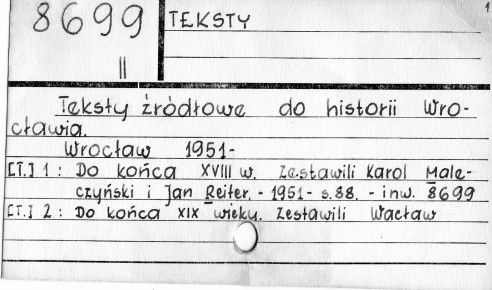 8699
II
TEKSTY
1
Teksty źródłowe do historii Wro-
cławia.
Wrocław 1951-
[T.] 1 : Do końca XVIII w. Zestawili Karol Male-
czyński i Jan Reiter. - 1951 - s. 88. - inw. 8699
[T.] 2 : Do końca XIX wieku. Zestawili Wacław